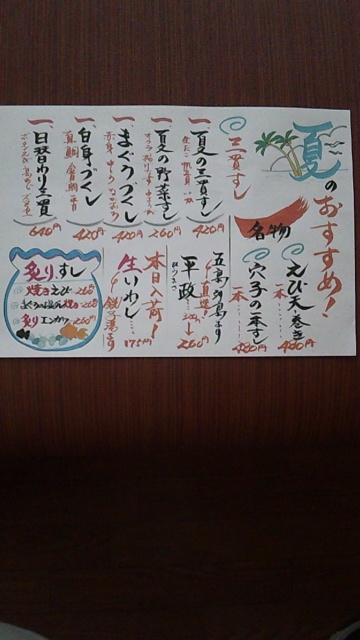 夏のおすすめ!
名物
えび天巻き
一本……480円
穴子の一本すし
一本……480円
三貫すし
一、夏の三貫すし
420円
一、夏の野菜すし
260円
一、まぐろづくし
420円
一、白身づくし
420円
一、日替わり三貫
640円
五島列島より
直送!
平政
260円
本日入荷!
生いわし
175円
炙りすし
焼きえび 260円
260円
炙りエンガワ 260円